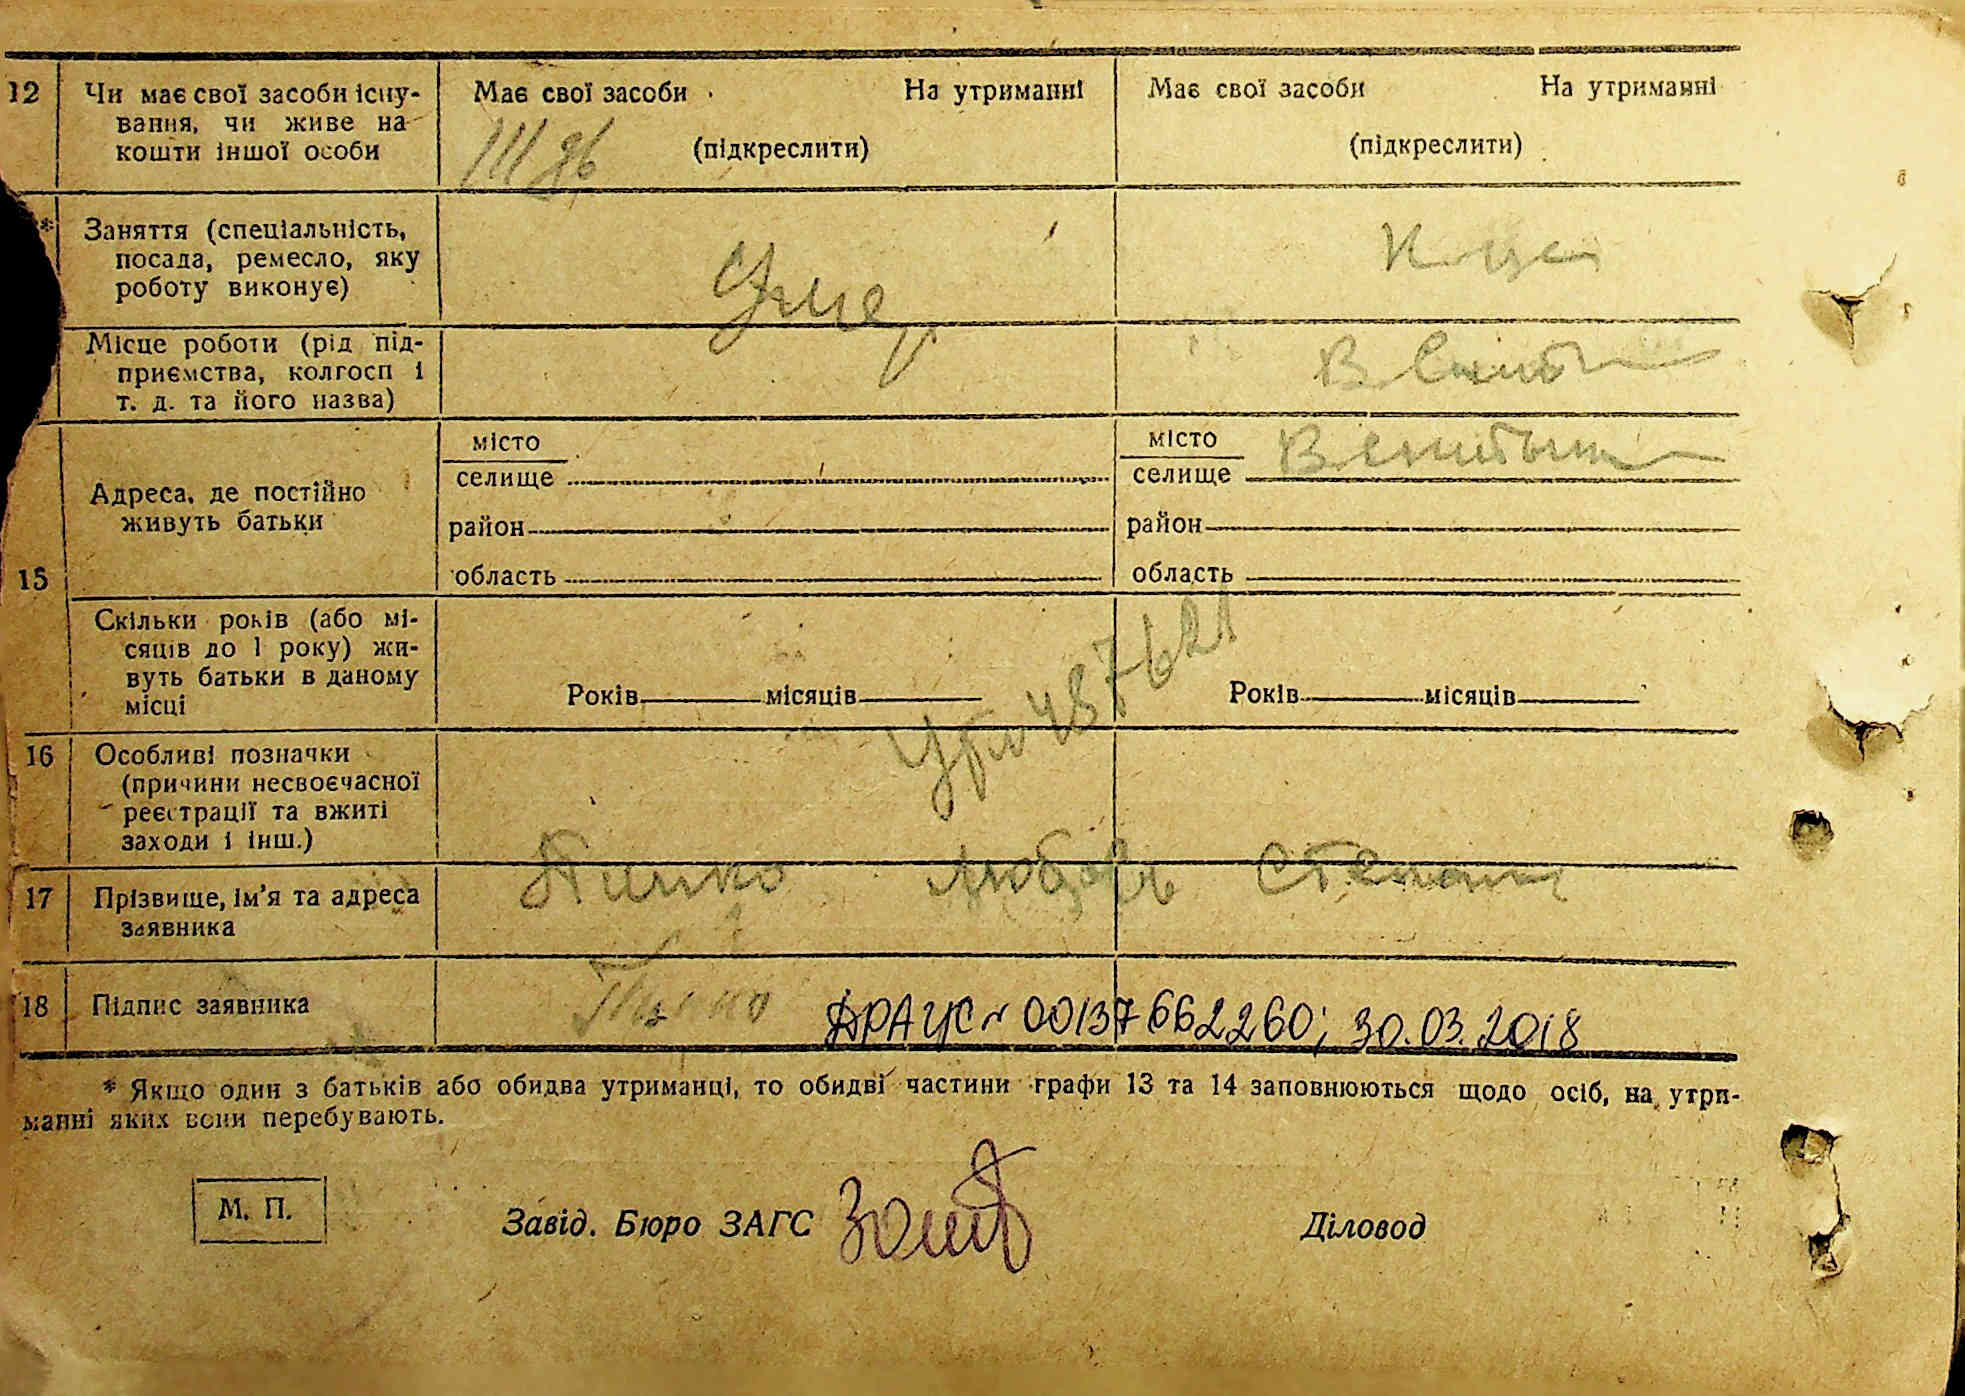 12 Чи має свої засоби існу-
вання, чи живе на
кошти іншої особи
Має свої засоби На утриманні
(підкреслити)
Має свої засоби На утриманні
(підкреслити)
* Заняття (спеціальність,
посада, ремесло, яку
роботу виконує)
Місце роботи (рід під-
приємства, колгосп і
т. д. та його назва)
15
Адреса, де постійно
живуть батьки
місто
селище
район
область
місто
селище
район
область
Скільки років (або мі-
сяців до 1 року) жи-
вуть батьки в даному
місці
Років місяців
Років місяців
487621
16 Особливі позначки
(причини несвоєчасної
реєстрації та вжиті
заходи і інш.)
17 Прізвище, ім'я та адреса
заявника
Любовь Степан
18 Підпис заявника
ДРАЦС № 00137662260; 30.03.2018
* Якщо один з батьків або обидва утриманці, то обидві частини графи 13 та 14 заповнюються щодо осіб, на утри-
манні яких вони перебувають.
М. П.
Завід. Бюро ЗАГС
Діловод